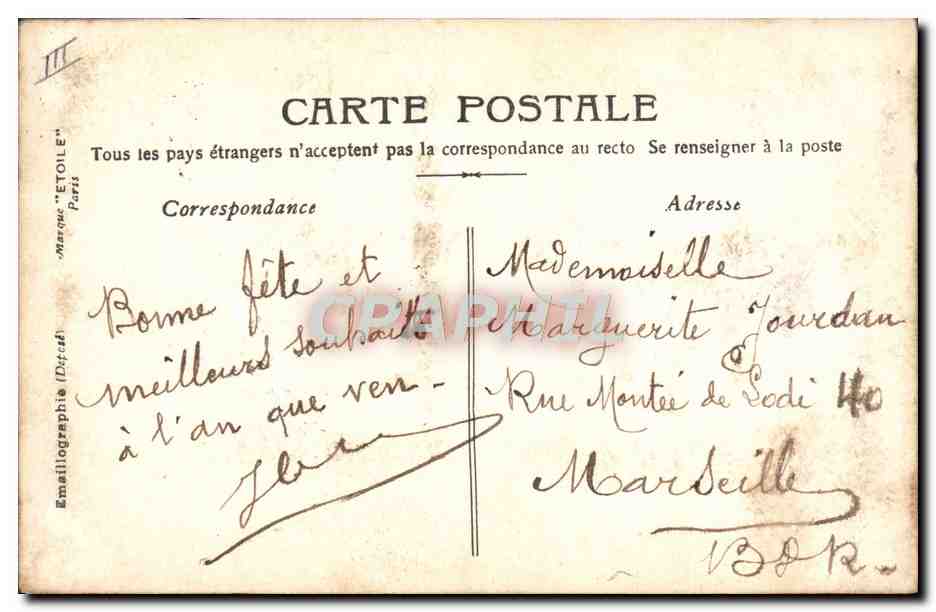 III
CARTE POSTALE
Tous les pays étrangers n'acceptent pas la correspondance au recto Se renseigner à la poste
Correspondance
Bonne fête et
meilleurs souhaits
à l'an que ven-
Adresse
Mademoiselle
Marguerite Jourdan
Rue Montée de Lodi 40
Marseille
B d R.
Emaillographie (Déposé) Marque "ETOILE"
Paris
CPAPHIL